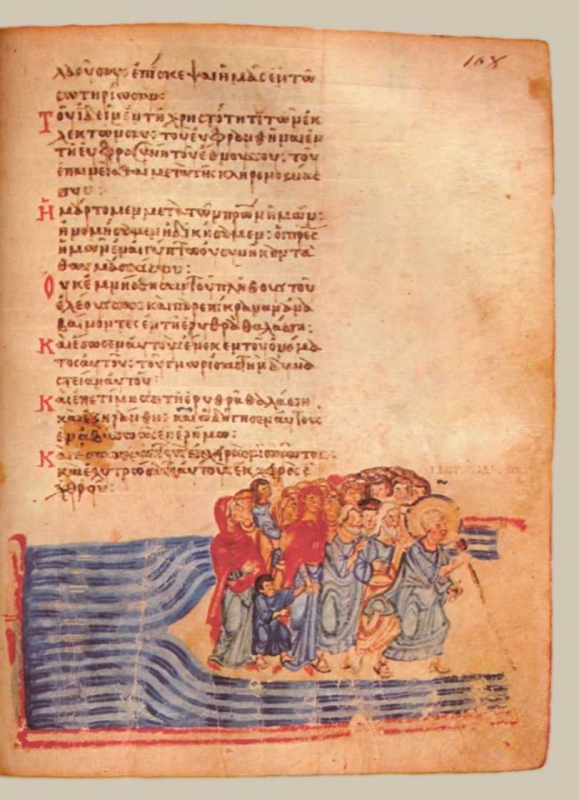 108
λαου σου· ἐπισκεψαι ἡμας ἐν τω
σωτηριω σου:
Του ἰδειν ἐν τη χριστοτητι των ἐκ
λεκτων σου· του εὐφρανθηναι ἐν
τη εὐφροσυνη του ἐθνους σου· του
ἐπαινεισθαι μετα της κληρονομιας
σου:
Ημαρτομεν μετα των πρων ἡμων:
ἠνομησαμεν ἠδικησαμεν: οἱ πρες
ἡμων ἐν αἰγυπτω οὐ συνηκαν τα
θαυμασια σου:
Οὐκ ἐμνησθησαν του πληθους του
ἐλεους σου: και παρεπικραναν ἀνα
βαινοντες ἐν τη ἐρυθρα θαλασση:
Και ἐσωσεν αὐτους ἐνεκεν του ὀνομα
τος αὐτου: του γνωρισαι την δυνα
στειαν αὐτου:
Και ἐπετιμησε τη ἐρυθρα θαλασση
και ἐξηρανθη: και ὡδηγησεν αὐτους
ἐν ἀβυσσω ὡς ἐν ἐρημω:
Και ἐσωσεν αὐτους ἐκ χειρος μισουντος:
και ἐλυτρωσατο αὐτους ἐκ χειρος ἐ
χθρου: